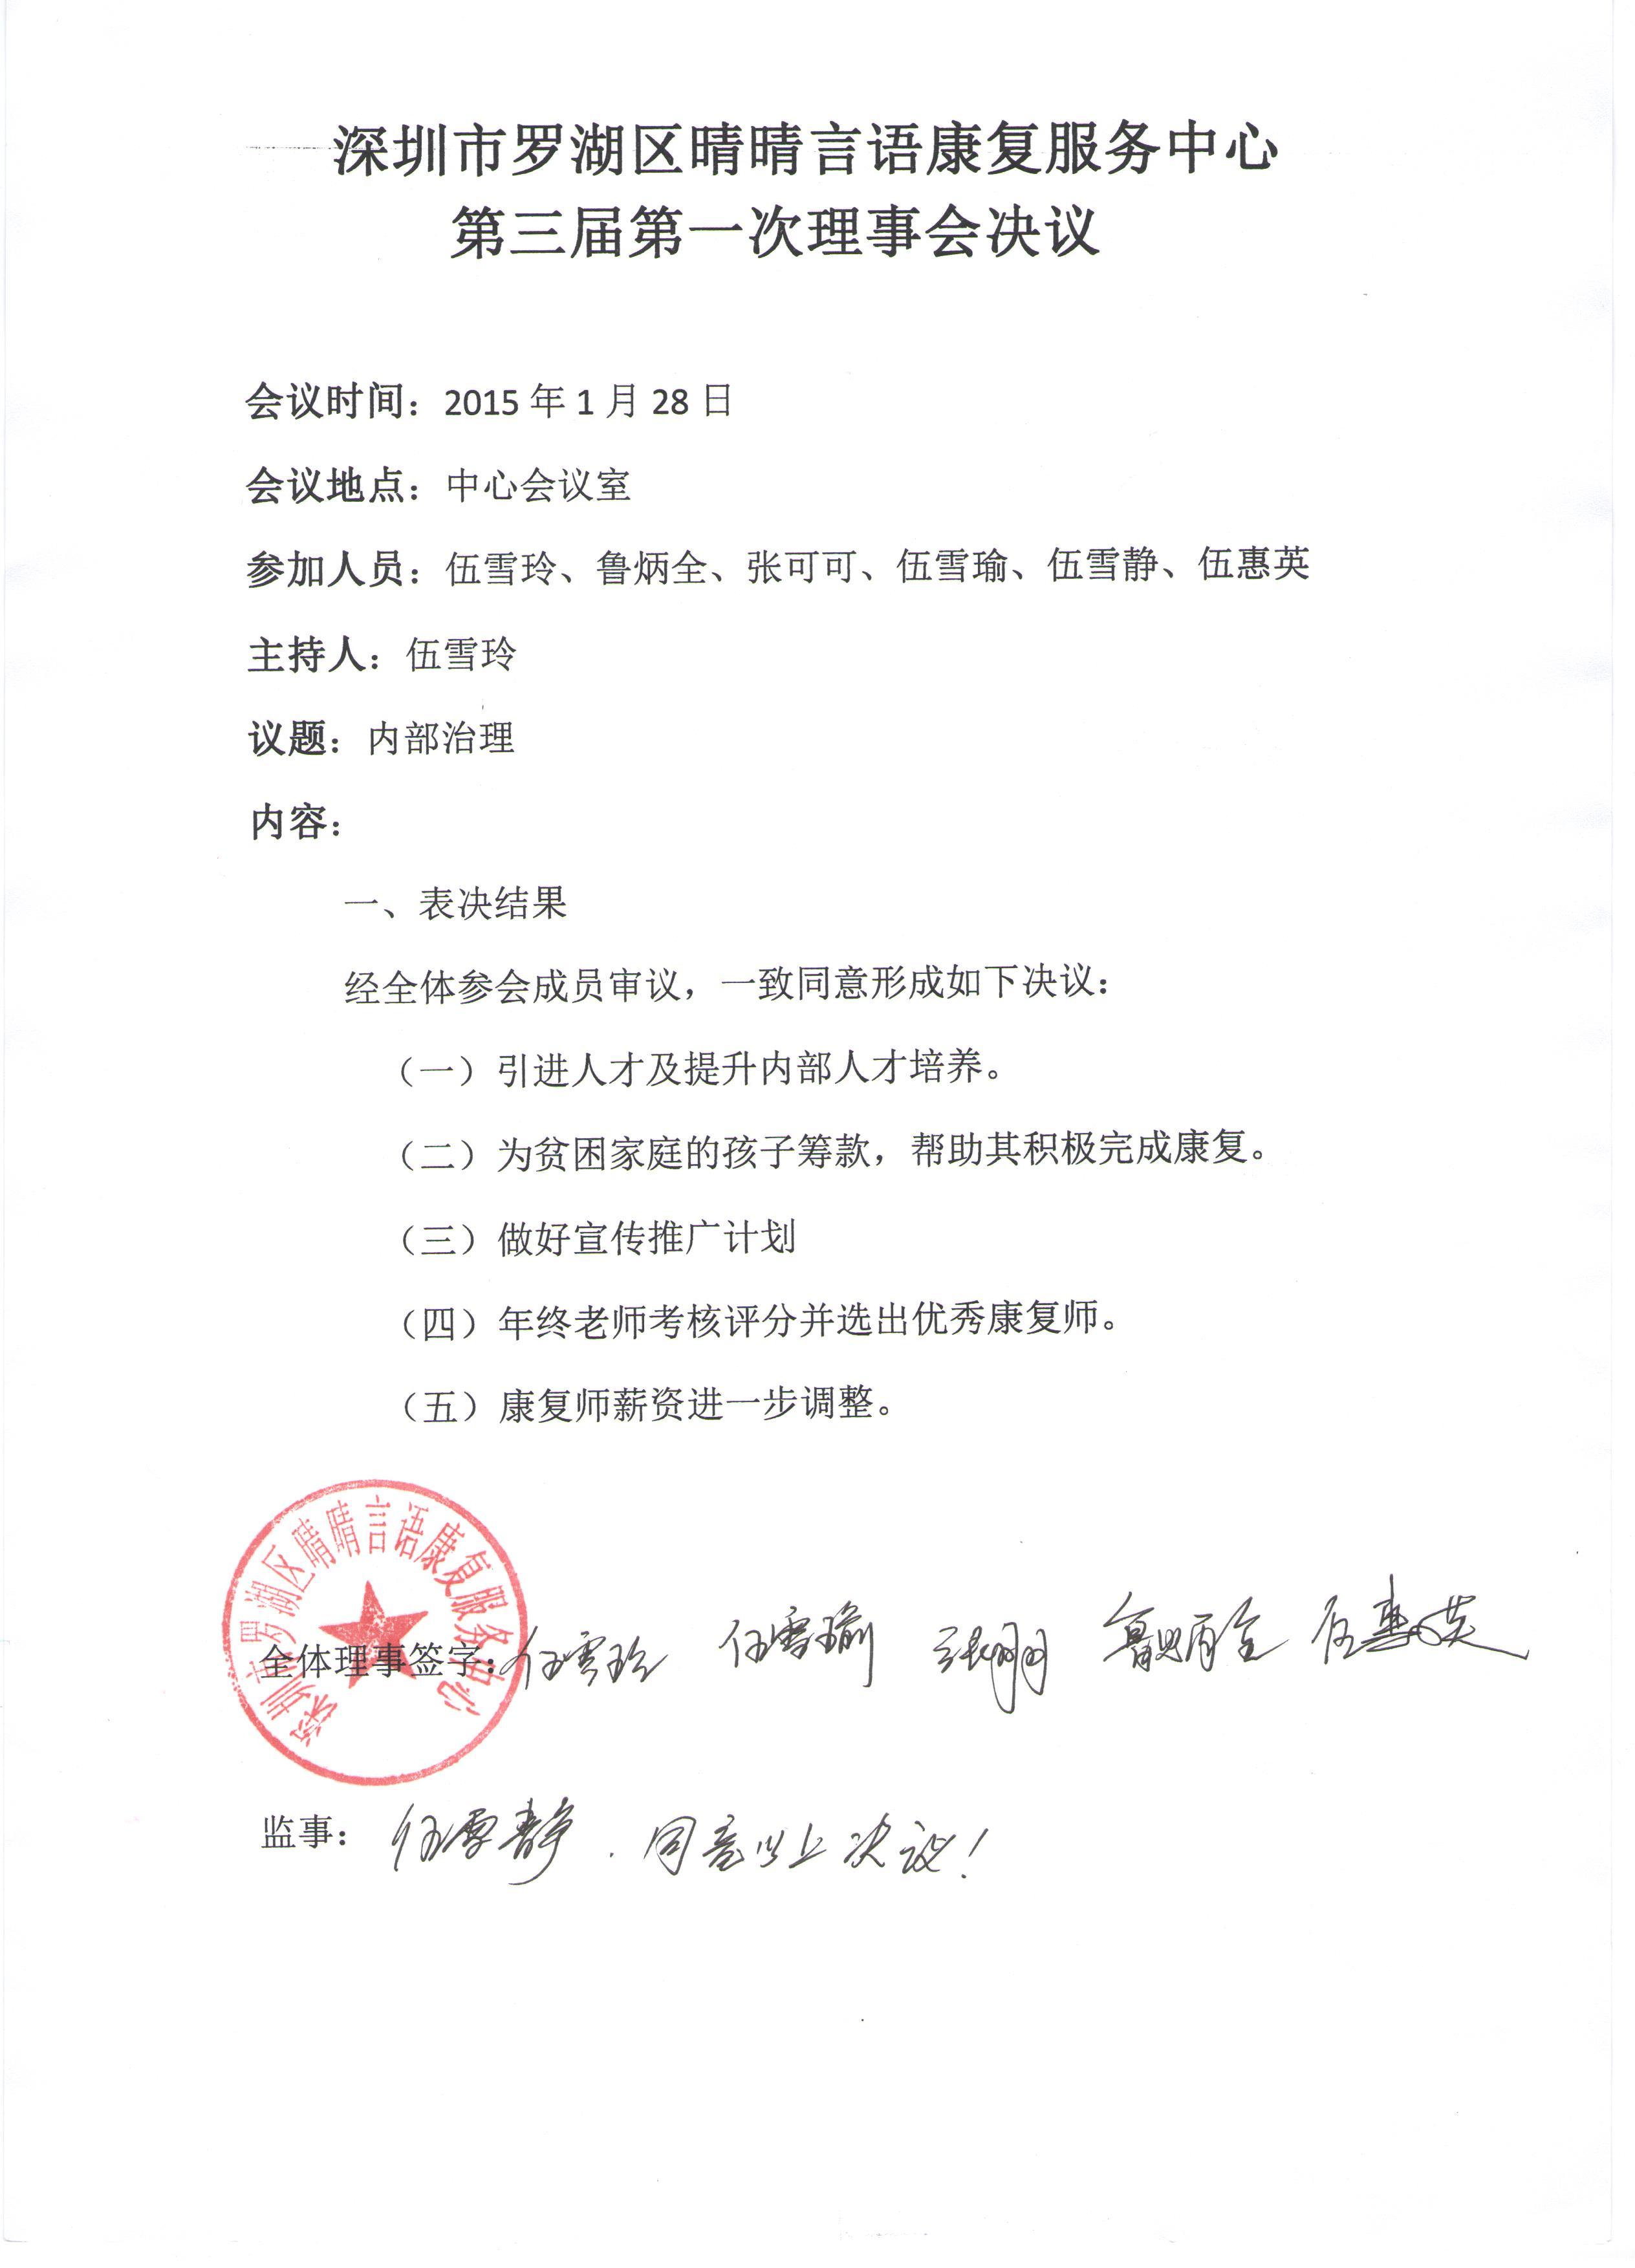 深圳市罗湖区晴晴言语康复服务中心
第三届第一次理事会决议
会议时间：2015 年 1 月 28 日
会议地点：中心会议室
参加人员：伍雪玲、鲁炳全、张可可、伍雪瑜、伍雪静、伍惠英
主持人：伍雪玲
议题：内部治理
内容：
一、表决结果
经全体参会成员审议，一致同意形成如下决议：
（一）引进人才及提升内部人才培养。
（二）为贫困家庭的孩子筹款，帮助其积极完成康复。
（三）做好宣传推广计划
（四）年终老师考核评分并选出优秀康复师。
（五）康复师薪资进一步调整。
深圳市罗湖区晴晴言语康复服务中心
全体理事签字：伍雪玲 伍雪瑜 张可可 鲁炳全 伍惠英
监事：伍雪静．同意以上决议！